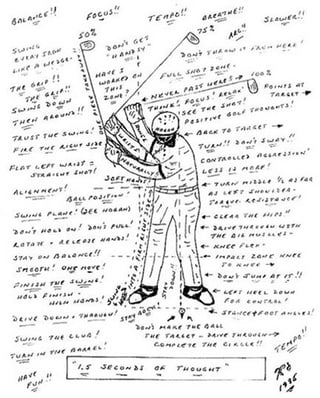 BALANCE!!
FOCUS!!
TEMPO!!
BREATHE!!
SLOWER!!
50%
75%
100%
SWING
EVERY IRON
LIKE A WEDGE!
DON'T GET
"HANDSY"
HAVE I
WORKED ON
THIS
ZONE?
DON'T THROW IT FROM HERE!
FULL SHOT ZONE
NEVER PAST HERE!
THINK! FOCUS! RELAX!
SEE THE SHOT!
POSITIVE GOLF THOUGHTS!
POINTS AT
TARGET
THE GRIP!!
THE GRIP!!
SWING DOWN
THEN AROUND!!
TRUST THE SWING!
FIRE THE RIGHT SIDE
FLAT LEFT WRIST =
STRAIGHT SHOT!
SOFT HANDS!
NATURALLY
ALIGNMENT!
BALL POSITION!
SWING PLANE! (SEE HOGAN)
DON'T HOLD ON! DON'T PULL!
ROTATE + RELEASE HANDS!
STAY ON BALANCE!!
SMOOTH! ONE MOVE!
FINISH THE SWING!
HOLD FINISH
HIGH HANDS!
DRIVE DOWN + THROUGH!
SWING THE CLUB!
TURN IN THE BARREL!
HAVE
FUN!!
BACK TO TARGET
TURN!! DON'T SWAY!!
CONTROLLED AGGRESSION!
LESS IS MORE!
TURN MIDDLE 1/2 AS FAR
AS LEFT SHOULDER -
TORQUE - RESISTANCE!
CLEAR THE HIPS
DRIVE THROUGH WITH
THE BIG MUSCLES
KNEE FLEX
IMPACT ZONE KNEE
TO KNEE
DON'T JUMP AT IT!!
LEFT HEEL DOWN
FOR CONTROL!
STANCE + FOOT ANGLES!
STAY DOWN!
DON'T MAKE THE BALL
THE TARGET - DRIVE THROUGH
COMPLETE THE CIRCLE!!
TEMPO!!
1986
"1.5 SECONDS OF THOUGHT"